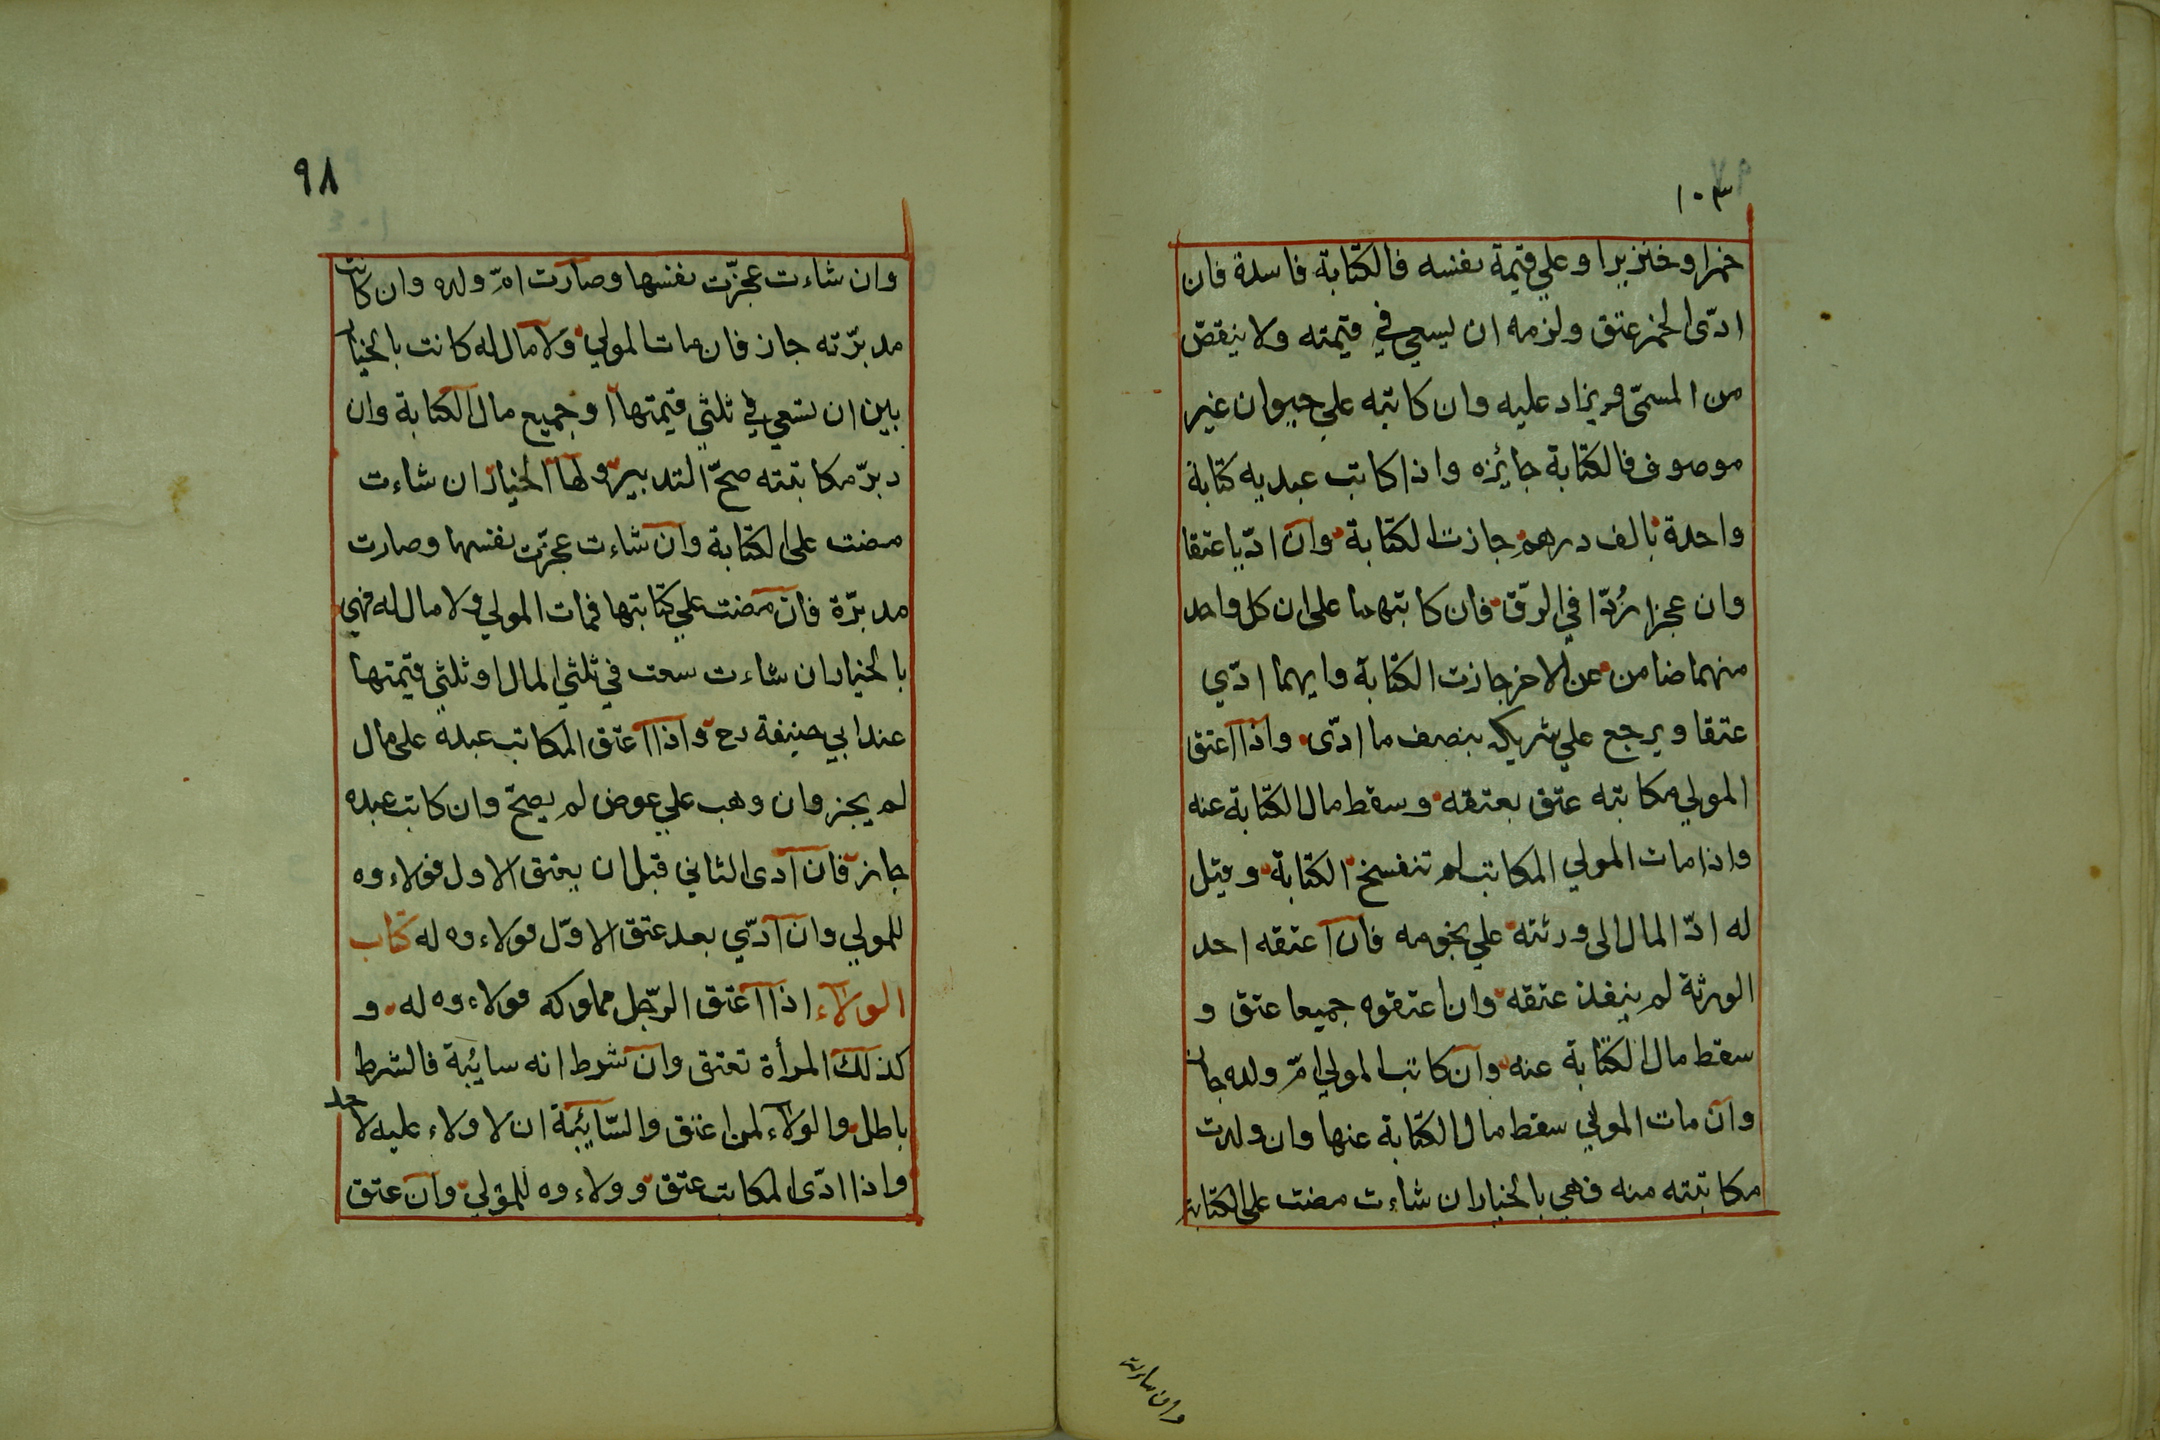 ١٠٣
خمرا وخنزيرا وعلي قيمة نفسه فالكتابة فاسدة فان
ادّى الخمر عتق ولزمه ان يسعي في قيمته ولا ينقص
من المسمّى ويزاد عليه وان كاتبه علي حيوان غير
موصوف فالكتابة جائزه واذا كاتب عبديه كتابة
واحدة بالف درهم جازت الكتابة وان ادّيا عتقا
وان عجزا رُدّا في الرقّ فان كاتبهما على ان كل واحد
منهما ضامن عن الاخر جازت الكتابة وايهما ادّي
عتقا ويرجع علي شريكه بنصف ما ادّى واذا اعتق
المولي مكاتبه عتق بعتقه وسقط مال الكتابة عنه
واذا مات المولي المكاتب لم تنفسخ الكتابة وقيل
له ادّ المال الى ورثته علي نجومه فان اعتقه احد
الورثة لم ينفذ عتقه وان اعتقوه جميعا عتق و
سقط مال الكتابة عنه وان كاتب المولي امّ ولده جاز
وان مات المولي سقط مال الكتابة عنها وان ولدت
مكاتبته منه فهي بالخيار ان شاءت مضت على الكتابة
وان شاءت
٩٨
وان شاءت عجزّت نفسها وصارت امّ ولده وان كانت
مدبرّته جاز فان مات المولي ولا مال له كانت بالخيار
بين ان تسعي في ثلثي قيمتها او جميع مال الكتابة وان
دبرّ مكاتبته صحّ التدبير ولها الخيار ان شاءت
مضت على الكتابة وان شاءت عجزّت نفسها وصارت
مدبرّة فان مضت علي كتابتها فمات المولي ولا مال له فهي
بالخيار ان شاءت سعت في ثلثي المال او ثلثي قيمتها
عند ابي حنيفة رح واذا اعتق المكاتب عبده على مال
لم يجز وان وهب علي عوض لم يصحّ وان كاتب عبده
جاز فان ادى الثاني قبل ان يعتق الاول فولاءوه
للمولي وان ادّي بعد عتق الاوّل فولاءوه له كتاب
الولاء اذا اعتق الرّجل مملوكه فولاءوه له و
كذلك المرأة تعتق وان شرط انه سايُبة فالشرط
باطل والولاء لمن اعتق والسّايئبة ان لا ولاء عليه لاحد
واذا ادّى المكاتب عتق وولاءوه للمولي وان عتق